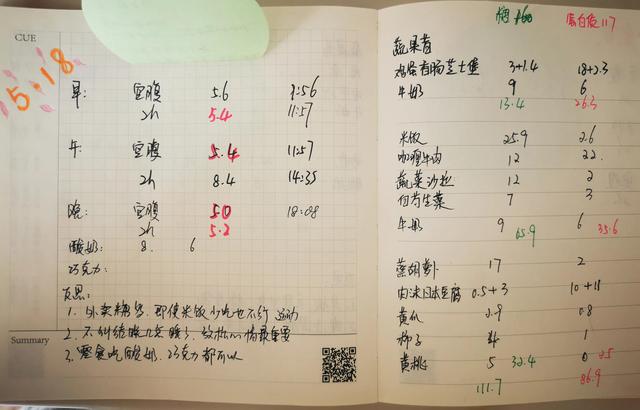 CUE
5.18
早: 空腹 5.6 9:56
2h 5.4 11:57
午 空腹 5.4 11:57
2h 8.4 14:35
晚: 空腹 5.0 18:08
2h 5.2
酸奶: 8. 6
巧克力:
反思:
1. 外卖糖多, 即使米饭少吃也不行 运动
2. 不纠结晚几点睡了, 放松心情最重要
3. 零食吃酸奶, 巧克力都可以
Summary
糖 蛋白质 117
蔬果青
鸡蛋香肠芝士堡 3+1.4 18+2.3
牛奶 9 6
13.4 26.3
米饭 25.9 2.6
咖喱牛肉 12 22.
蔬菜沙拉 12 2
白芍生菜 7 3
牛奶 9 65.9 6 35.6
蒸胡萝卜 17 2
肉沫日本豆腐 0.5+3 10+11
黄瓜 2.9 0.8
柿子 4 1
黄桃 5 32.4 0 25
111.7 86.9